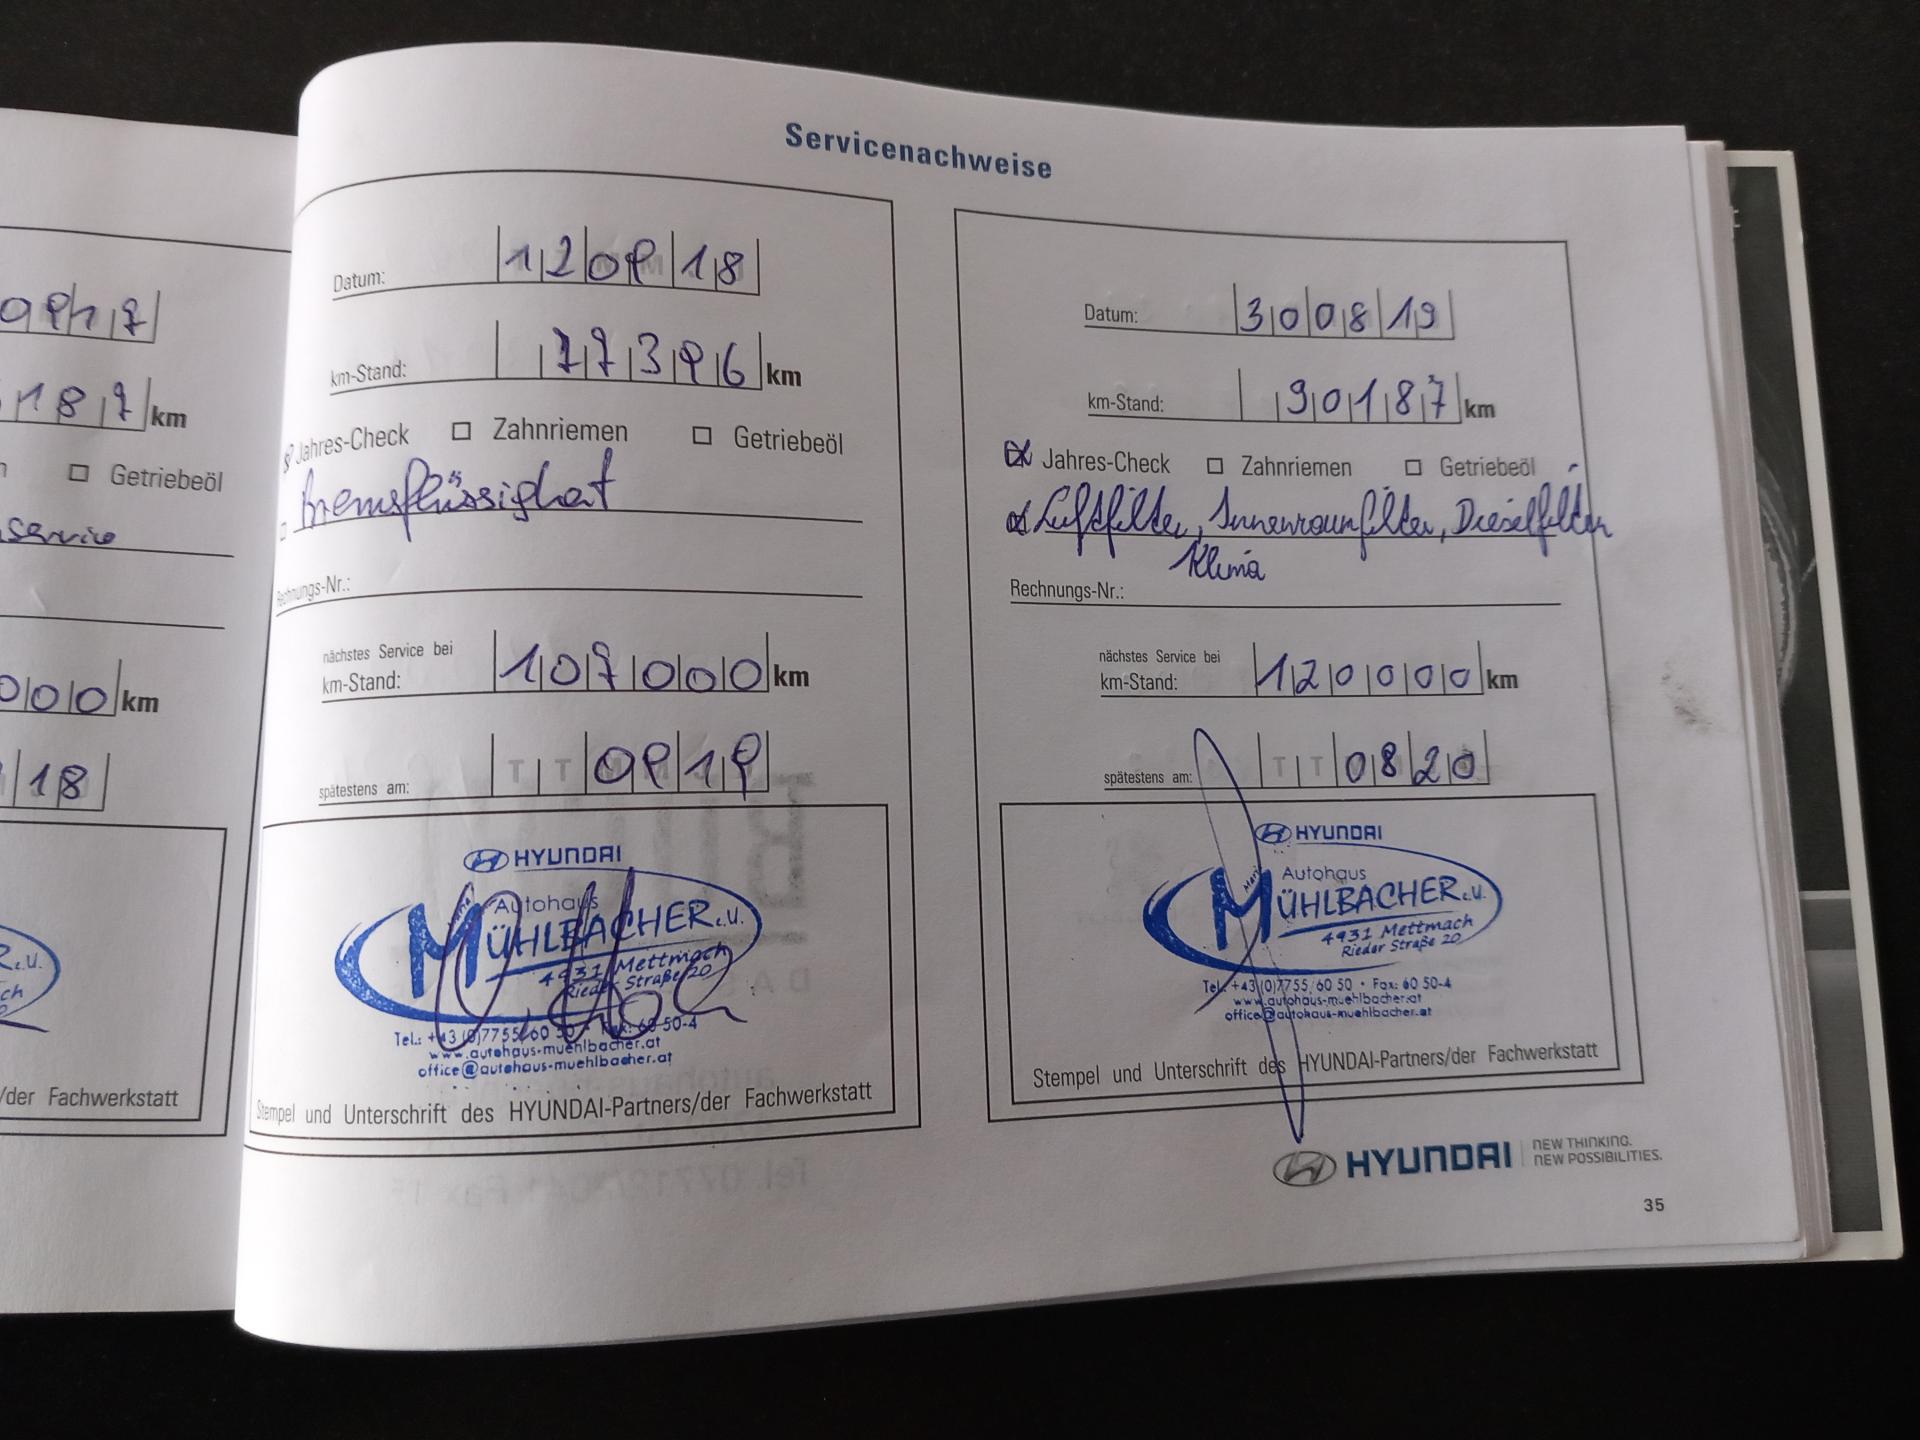 Servicenachweise
18,7 km
Getriebeöl
Service
000 km
18
/der Fachwerkstatt
Datum: 120918
km-Stand: 77396 km
Jahres-Check Zahnriemen Getriebeöl
Bremsflüssigkeit
Rechnungs-Nr.:
nächstes Service bei
km-Stand: 107000 km
spätestens am: TT 0919
HYUNDAI
Autohaus
MÜHLBACHER e.U.
4931 Mettmach
Rieder Straße 20
Tel.: +43 (0)7755/60 50 • Fax: 60 50-4
www.autohaus-muehlbacher.at
office@autohaus-muehlbacher.at
Stempel und Unterschrift des HYUNDAI-Partners/der Fachwerkstatt
Datum: 300819
km-Stand: 90187 km
Jahres-Check Zahnriemen Getriebeöl
Luftfilter, Innenraumfilter, Dieselfilter
Klima
Rechnungs-Nr.:
nächstes Service bei
km-Stand: 120000 km
spätestens am: TT 0820
HYUNDAI
Autohaus
MÜHLBACHER e.U.
4931 Mettmach
Rieder Straße 20
Tel.: +43 (0)7755/60 50 • Fax: 60 50-4
www.autohaus-muehlbacher.at
office@autohaus-muehlbacher.at
Stempel und Unterschrift des HYUNDAI-Partners/der Fachwerkstatt
HYUNDAI NEW THINKING.
NEW POSSIBILITIES.
35